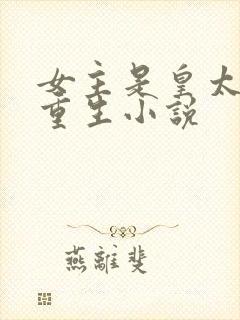 女主是皇太
重生小说
燕離斐